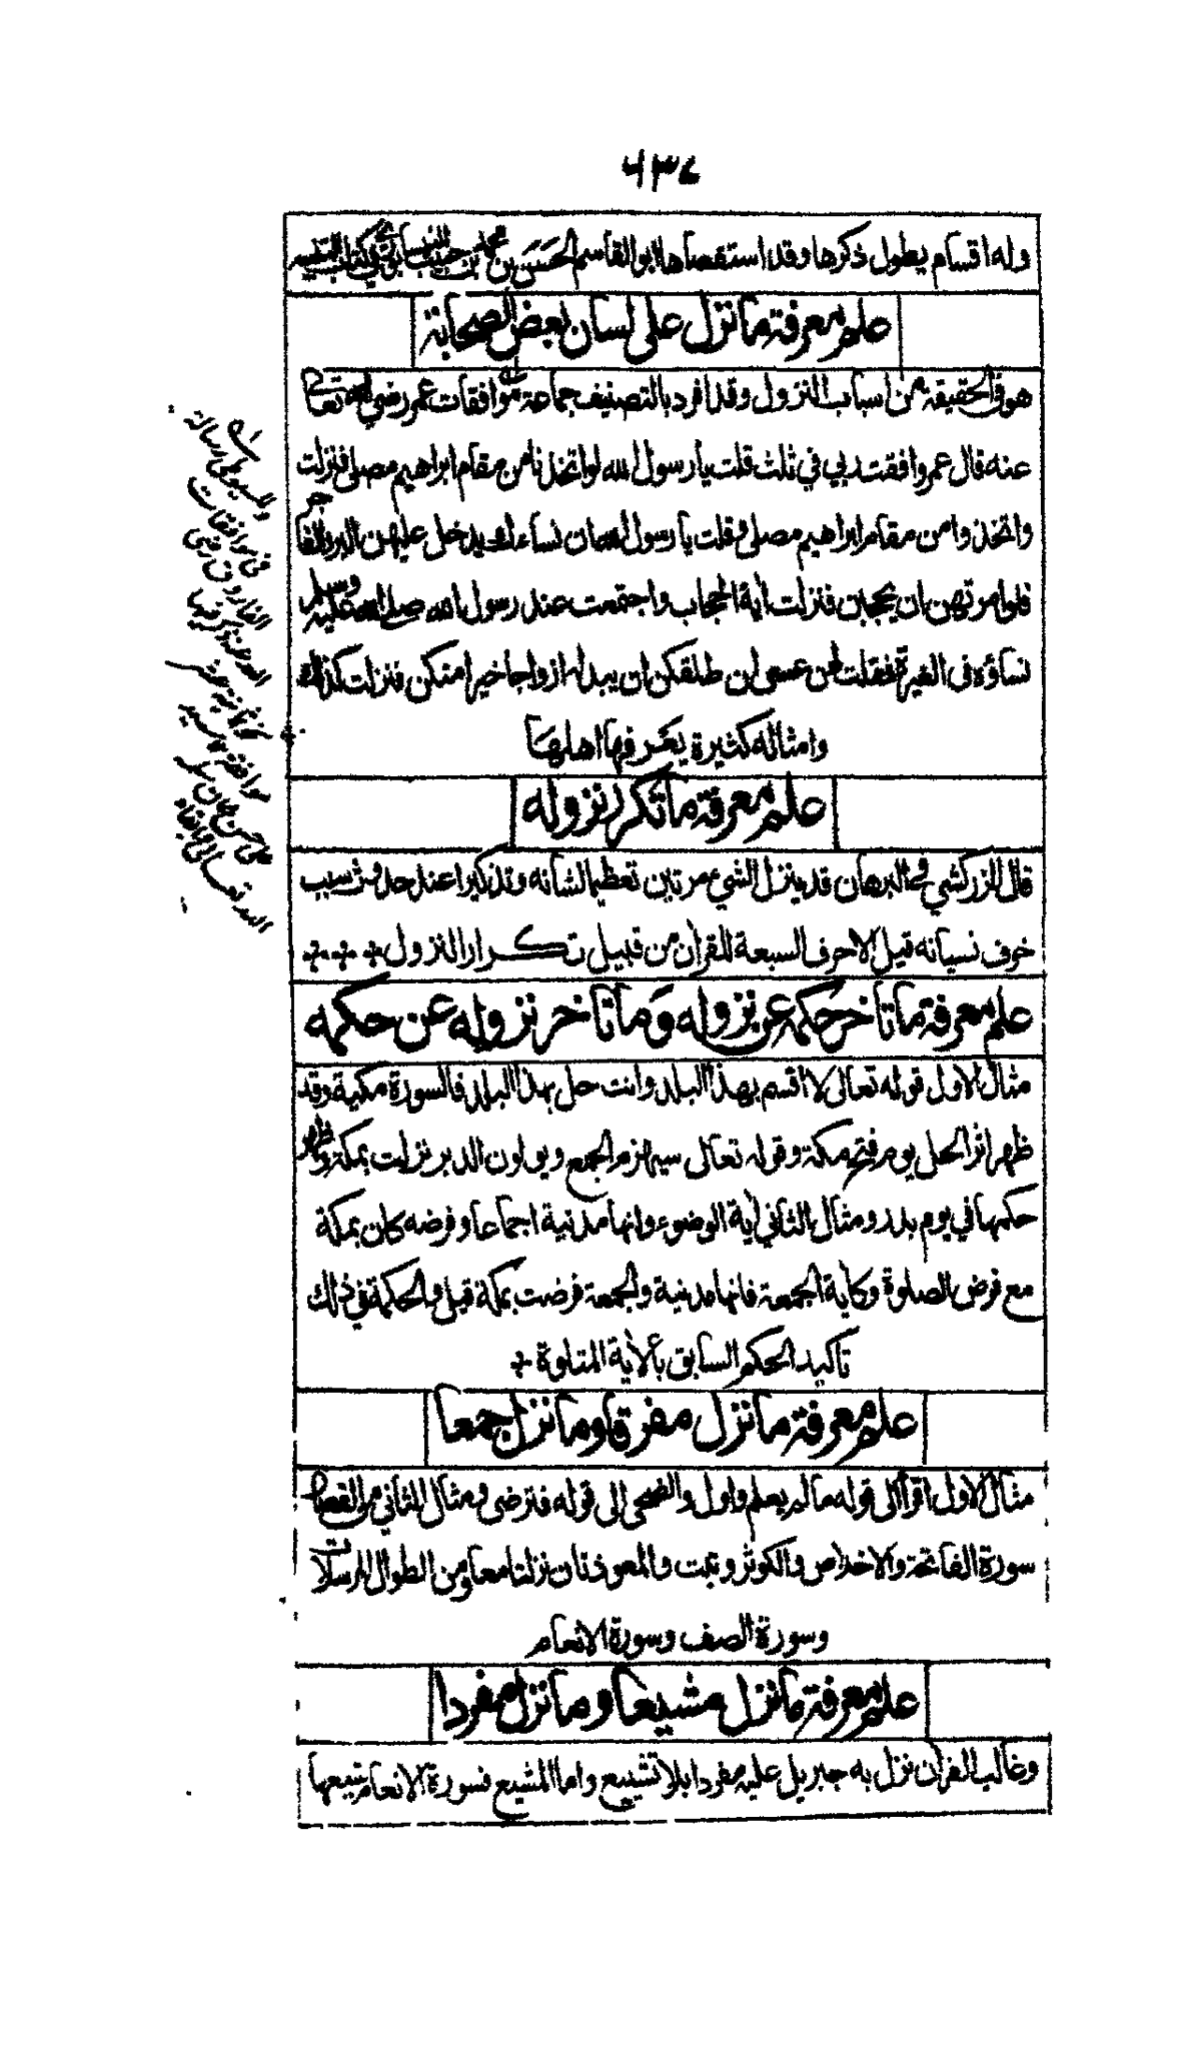 ٦٣٤
وله اقسام يطول ذكرها وقد استقصاها ابو القاسم الحسن بن محمد بن حبيب النيسابوري في كتاب التنبيه
علم معرفة ما نزل على لسان بعض الصحابة
هو في الحقيقة من اسباب النزول وقد افرد بالتصنيف جماعة موافقات عمر رضي الله تعالى
عنه قال عمر وافقت ربي في ثلث قلت يا رسول الله لو اتخذنا من مقام ابراهيم مصلى فنزلت
واتخذوا من مقام ابراهيم مصلى وقلت يا رسول الله ان نساءك يدخل عليهن البر والفاجر
فلو امرتهن ان يحجبن فنزلت اية الحجاب واجتمعت عند رسول الله صلى الله عليه وسلم
نساؤه في الغيرة فقلت لهن عسى ان طلقكن ان يبدله ازواجا خيرا منكن فنزلت كذلك
وامثاله كثيرة يعرفها اهلها
علم معرفة ما تكرر نزوله
قال الزركشي في البرهان قد ينزل الشيء مرتين تعظيما لشانه وتذكيرا عند حدوث سبب
خوف نسيانه قيل الاحرف السبعة للقران من قبيل تكرار النزول
علم معرفة ما تاخر حكمه عن نزوله وما تاخر نزوله عن حكمه
مثال الاول قوله تعالى لا اقسم بهذا البلد وانت حل بهذا البلد فالسورة مكية وقد
ظهر اثر الحل يوم فتح مكة وقوله تعالى سيهزم الجمع ويولون الدبر نزلت بمكة وظهر
حكمها في يوم بدر ومثال الثاني اية الوضوء وانها مدنية اجماعا وفرضه كان بمكة
مع فرض الصلوة وكاية الجمعة فانها مدنية والجمعة فرضت بمكة قيل والحكمة في ذلك
تاكيد الحكم السابق بالاية المتلوة
علم معرفة ما نزل مفرقا وما نزل جمعا
مثال الاول اقرأ الى قوله ما لم يعلم واول والضحى الى قوله فترضى ومثال الثاني من القصار
سورة الفاتحة والاخلاص والكوثر وتبت والمعوذتان نزلتا معا ومن الطوال المرسلات
وسورة الصف وسورة الانعام
علم معرفة ما نزل مشيعا وما نزل مفردا
وغالب القران نزل به جبريل عليه مفردا بلا تشييع واما المشيع فسورة الانعام شيعها
وللسيوطي رسالة
في موافقات
الفاروق رضي